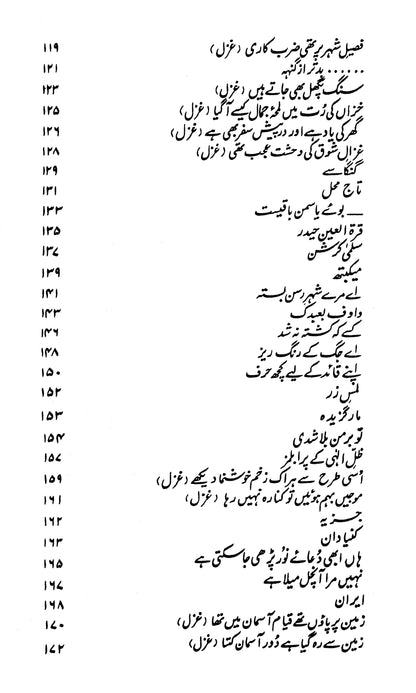 فصیلِ شہر پر تھی ضرب کاری (غزل) ۱۱۹
...... بدتر از گنہ ۱۲۱
سنگ پگھل بھی جاتے ہیں (غزل) ۱۲۳
خزاں کی رُت میں لمحۂ جمال کیسے آ گیا (غزل) ۱۲۵
گھر کی یاد ہے اور درپیش سفر بھی ہے (غزل) ۱۲۶
غزالِ شوق کی وحشت عجب تھی (غزل) ۱۲۸
گنگا سے ۱۲۹
تاج محل ۱۳۱
— بوئے یاسمن باقیست ۱۳۳
قرۃ العین حیدر ۱۳۵
سلمیٰ کرشن ۱۳۷
میکبتھ ۱۳۹
اے مرے شہرِ رسن بستہ ۱۴۱
داؤف بعہدک ۱۴۳
کسے کہ کشتہ نہ شد ۱۴۶
اے جگ کے رنگ ریز ۱۴۸
اپنے قائد کے لیے کچھ حرف ۱۵۰
لمسِ زر ۱۵۲
مارگزیدہ ۱۵۳
تو برمن بلا شدی ۱۵۴
ظلِّ الٰہی کے پرابلمز ۱۵۷
اُسی طرح سے ہر اک زخم خوشنما دیکھے (غزل) ۱۵۹
موجیں بہم ہوئیں تو کنارہ نہیں رہا (غزل) ۱۶۱
جزیہ ۱۶۲
کنیادان ۱۶۳
ہاں ابھی دُعائے نُور پڑھی جا سکتی ہے ۱۶۵
نہیں مرا آنچل میلا ہے ۱۶۷
ایران ۱۶۸
زمین پر پاؤں تھے قیام آسمان میں تھا (غزل) ۱۷۰
زمین سے رہ گیا ہے دُور آسمان کتنا (غزل) ۱۷۲